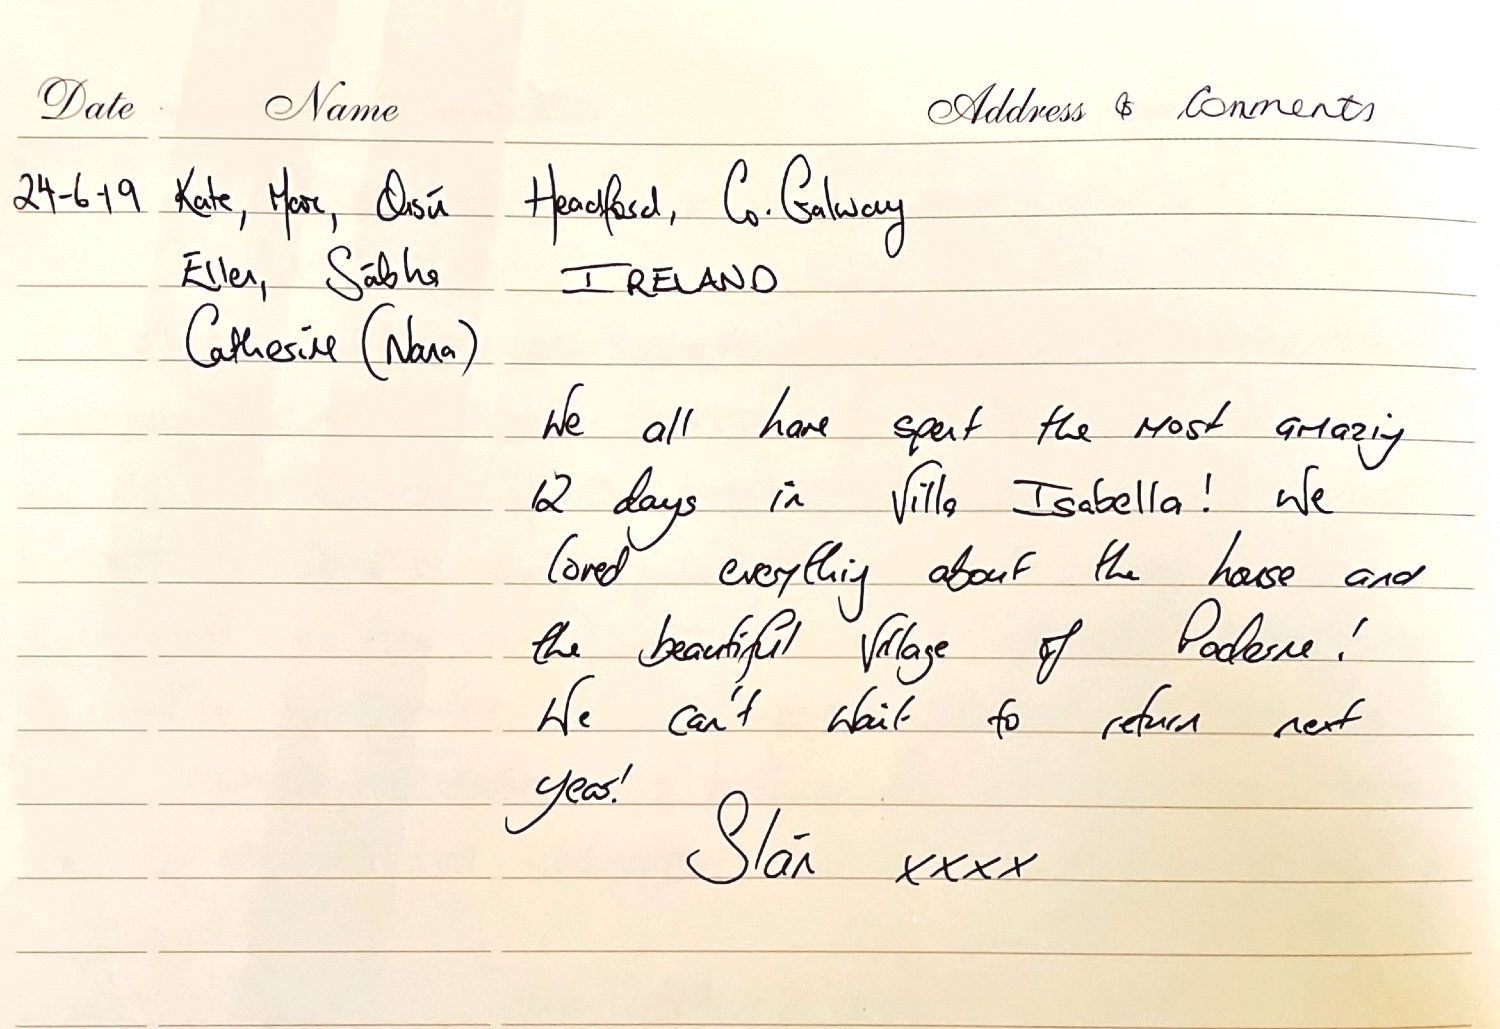 Date Name Address & Comments
24-6-19 Kate, Marc, Oisín Headford, Co. Galway
Ellen, Sábha IRELAND
Catherine (Nana)
We all have spent the most amazing
12 days in Villa Isabella! We
loved everything about the house and
the beautiful village of Paderne!
We can't wait to return next
year!
Slán xxxx